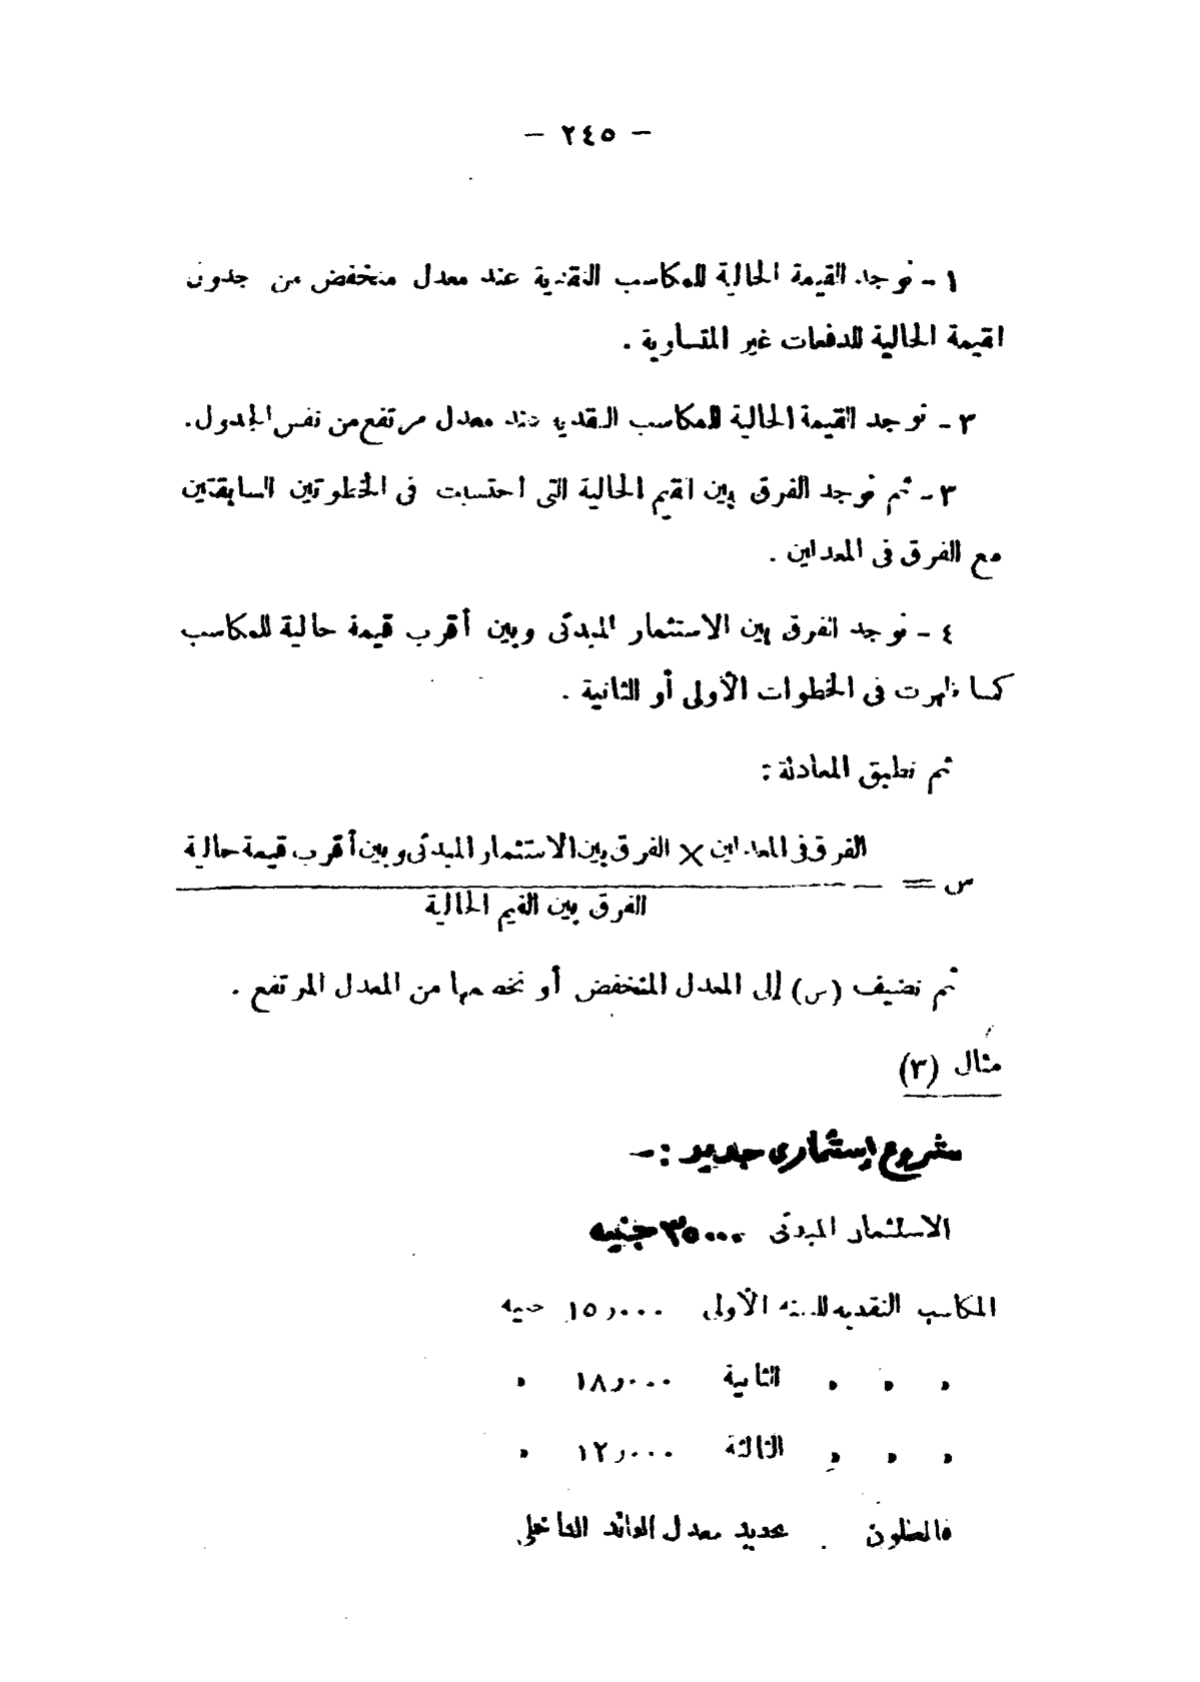 — ٢٤٥ —
١ - نوجد القيمة الحالية للمكاسب النقدية عند معدل منخفض من جدول
القيمة الحالية للدفعات غير المتساوية .
٢ - نوجد القيمة الحالية للمكاسب النقدية عند معدل مرتفع من نفس الجدول.
٣ - ثم نوجد الفرق بين القيم الحالية التى احتسبت فى الخطوتين السابقتين
مع الفرق فى المعدلين .
٤ - نوجد الفرق بين الاستثمار المبدئى وبين أقرب قيمة حالية للمكاسب
كما ظهرت فى الخطوات الأولى أو الثانية .
ثم نطبق المعادلة :
س = الفرق فى المعدلين × الفرق بين الاستثمار المبدئى وبين أقرب قيمة حالية
الفرق بين القيم الحالية
ثم نضيف (س) إلى المعدل المنخفض أو نخصمها من المعدل المرتفع .
مثال (٣)
مشروع إستثمارى جديد :-
الاستثمار المبدئى ٣٥٠٠٠ جنيه
المكاسب النقدية للسنة الأولى ١٥٫٠٠٠ جنيه
» » » الثانية ١٨٫٠٠٠ »
» » » الثالثة ١٢٫٠٠٠ »
فالمطلوب تحديد معدل العائد الداخلى